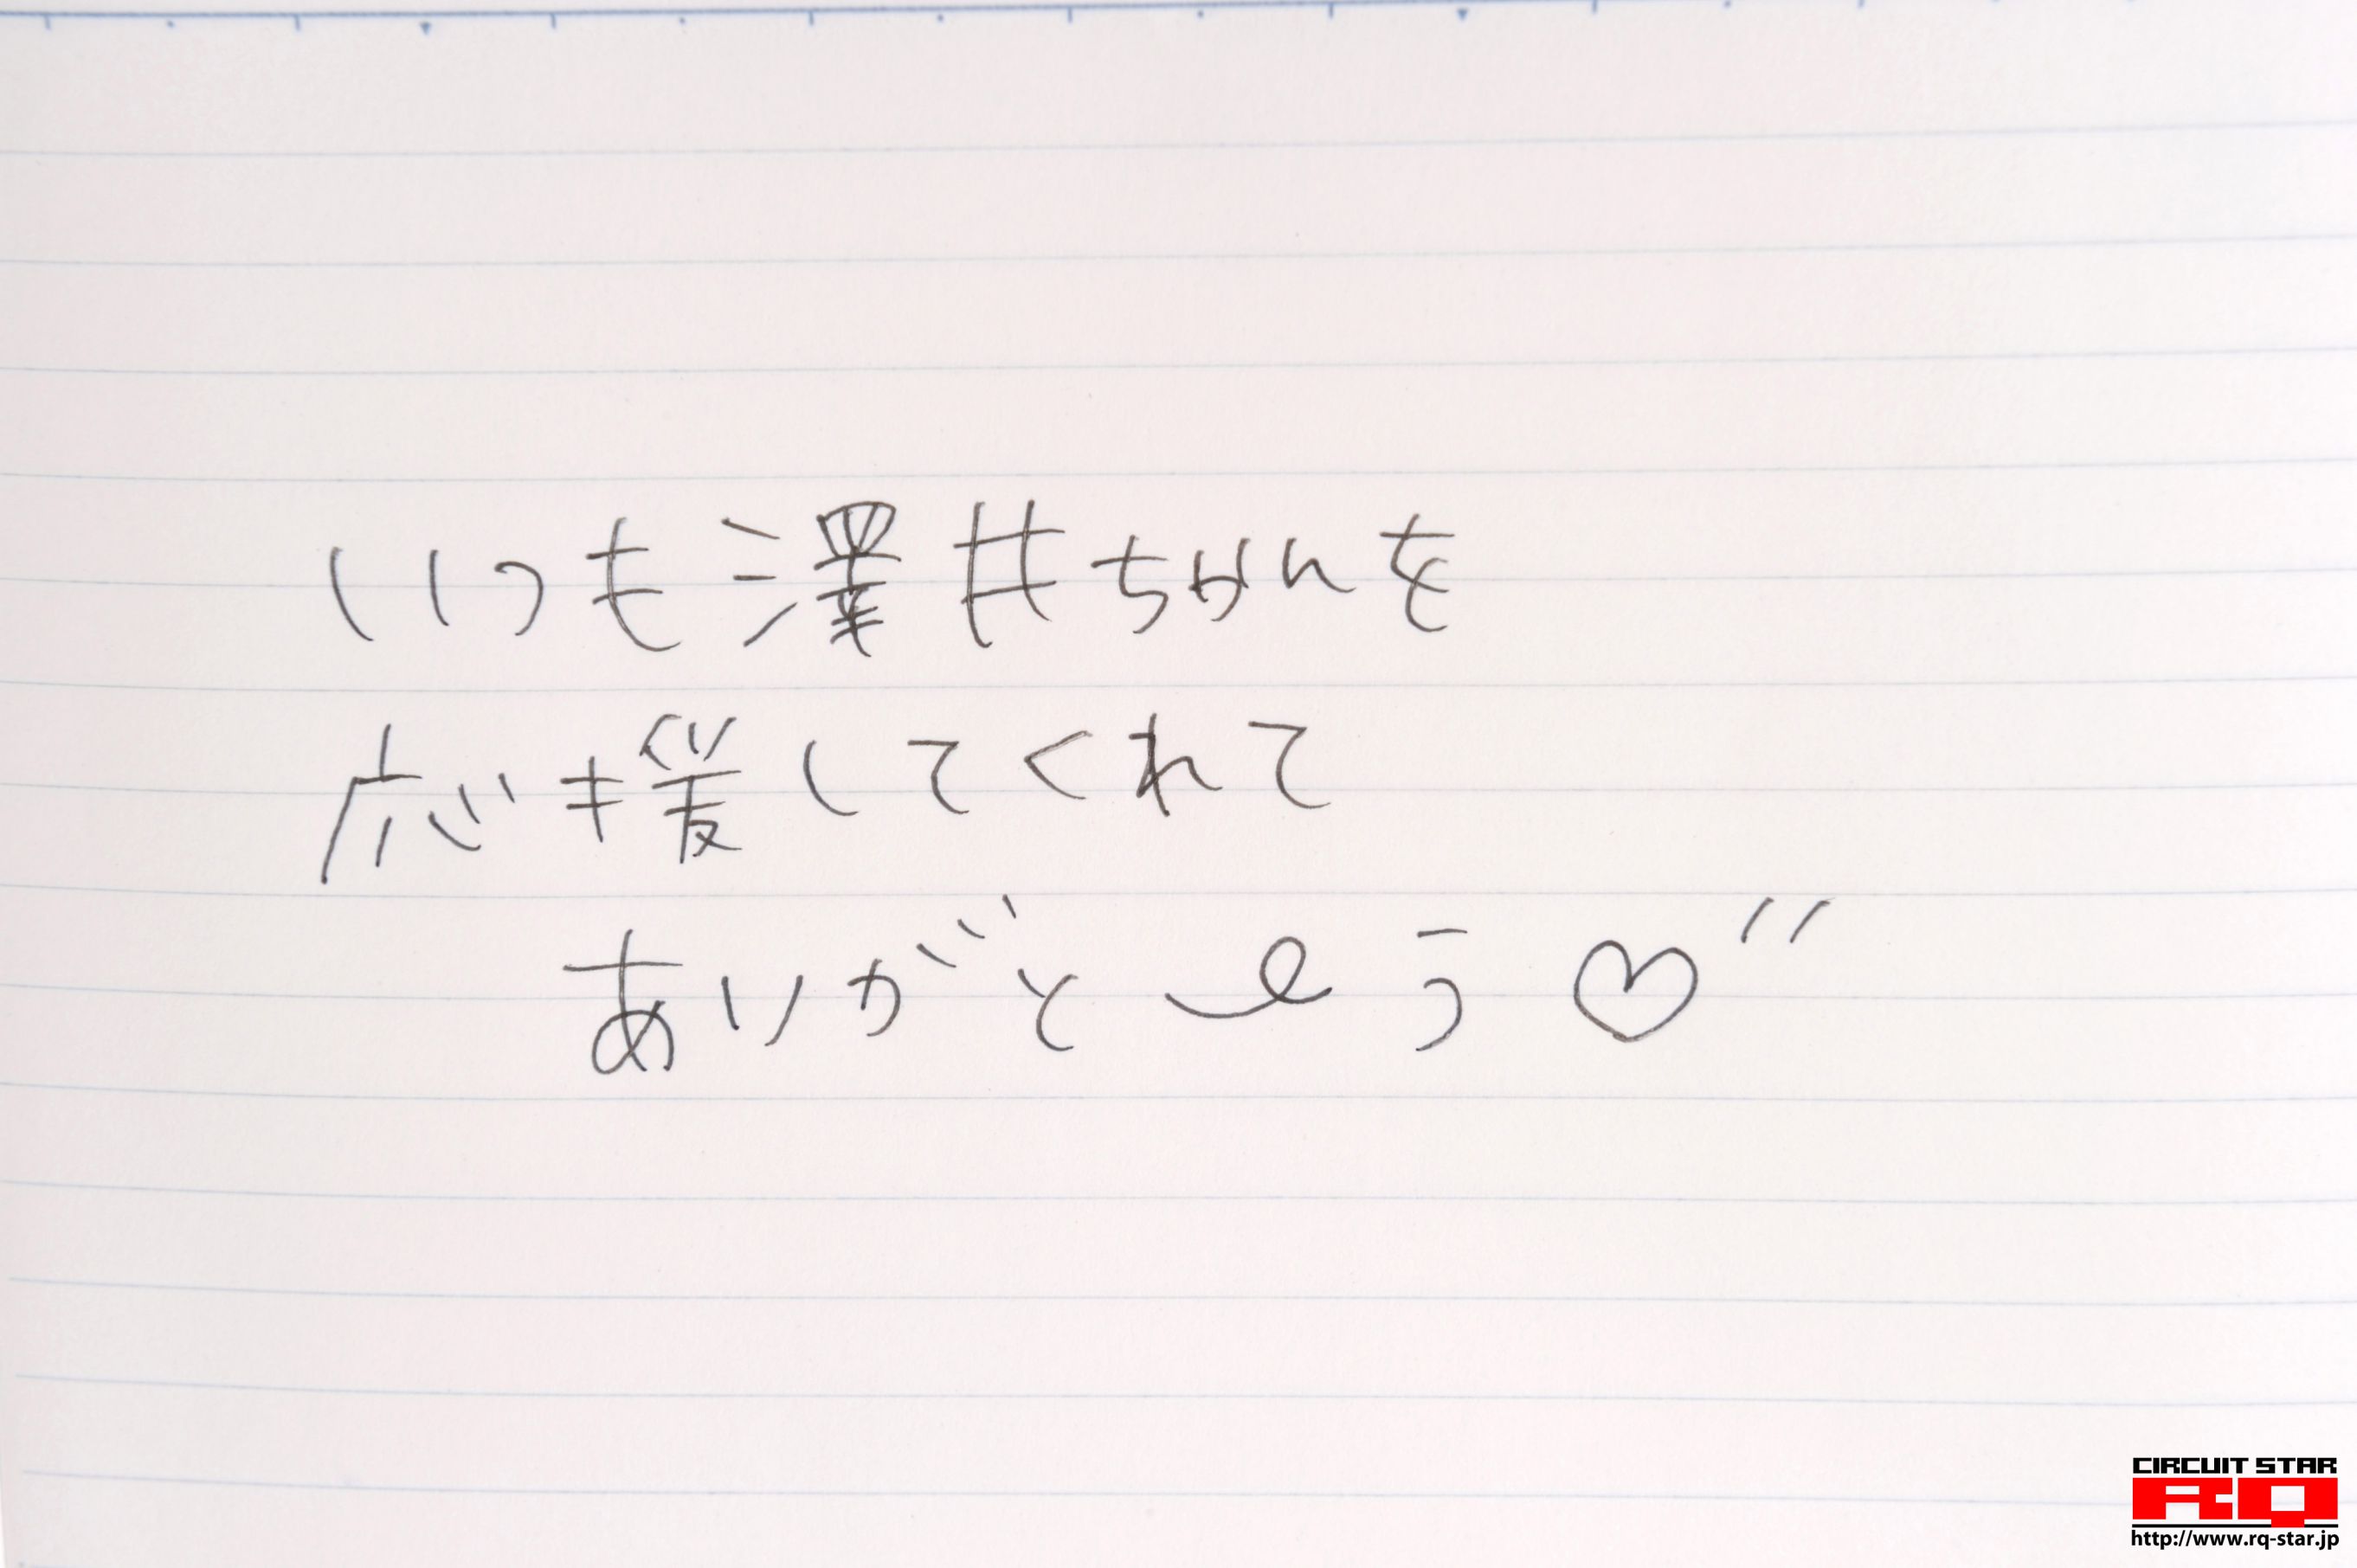 いつも澤井ちかんを
応援してくれて
ありがと〜う♡"
CIRCUIT STAR
RQ
http://www.rq-star.jp